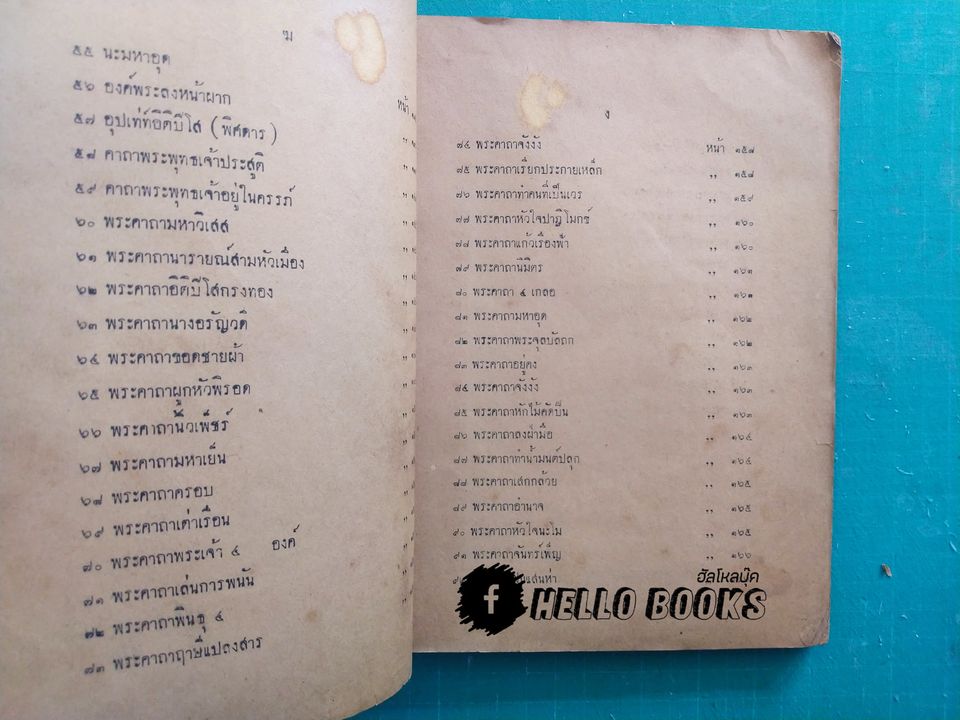 ฆ
๕๕ นะมหาอุด
๕๖ องค์พระลงหน้าผาก
๕๗ อุปเท่ห์อิติปิโส (พิศดาร)
๕๘ คาถาพระพุทธเจ้าประสูติ
๕๙ คาถาพระพุทธเจ้าอยู่ในครรภ์
๖๐ พระคาถามหาวิเสส
๖๑ พระคาถานารายณ์สามหัวเมือง
๖๒ พระคาถาอิติปิโสกรงทอง
๖๓ พระคาถานางอรัญวดี
๖๔ พระคาถาขอดชายผ้า
๖๕ พระคาถาผูกหัวพิรอด
๖๖ พระคาถานิ้วเพ็ชร์
๖๗ พระคาถามหาเย็น
๖๘ พระคาถาครอบ
๖๙ พระคาถาเต่าเรือน
๗๐ พระคาถาพระเจ้า ๕ องค์
๗๑ พระคาถาเล่นการพนัน
๗๒ พระคาถาพินธุ ๕
๗๓ พระคาถาฤาษีแปลงสาร
หน้า
ง
๗๔ พระคาถาจังงัง หน้า ๑๕๗
๗๕ พระคาถาเรียกประกายเหล็ก ,, ๑๕๘
๗๖ พระคาถาทำคนที่เป็นเวร ,, ๑๕๙
๗๗ พระคาถาหัวใจปาฏิโมกข์ ,, ๑๖๐
๗๘ พระคาถาแก้วเรืองฟ้า ,, ๑๖๐
๗๙ พระคาถานิมิตร ,, ๑๖๑
๘๐ พระคาถา ๕ เกลอ ,, ๑๖๑
๘๑ พระคาถามหาอุด ,, ๑๖๒
๘๒ พระคาถาพระจุลบัลถก ,, ๑๖๒
๘๓ พระคาถาอยู่คง ,, ๑๖๓
๘๔ พระคาถาจังงัง ,, ๑๖๓
๘๕ พระคาถาหักไม้คัดปืน ,, ๑๖๓
๘๖ พระคาถาลงฝ่ามือ ,, ๑๖๔
๘๗ พระคาถาทำน้ำมนต์ปลุก ,, ๑๖๔
๘๘ พระคาถาเสกกล้วย ,, ๑๖๕
๘๙ พระคาถาอำนาจ ,, ๑๖๕
๙๐ พระคาถาหัวใจนะโม ,, ๑๖๕
๙๑ พระคาถาจันทร์เพ็ญ ,, ๑๖๖
ฮัลโหลบุ๊ค
f HELLO BOOKS